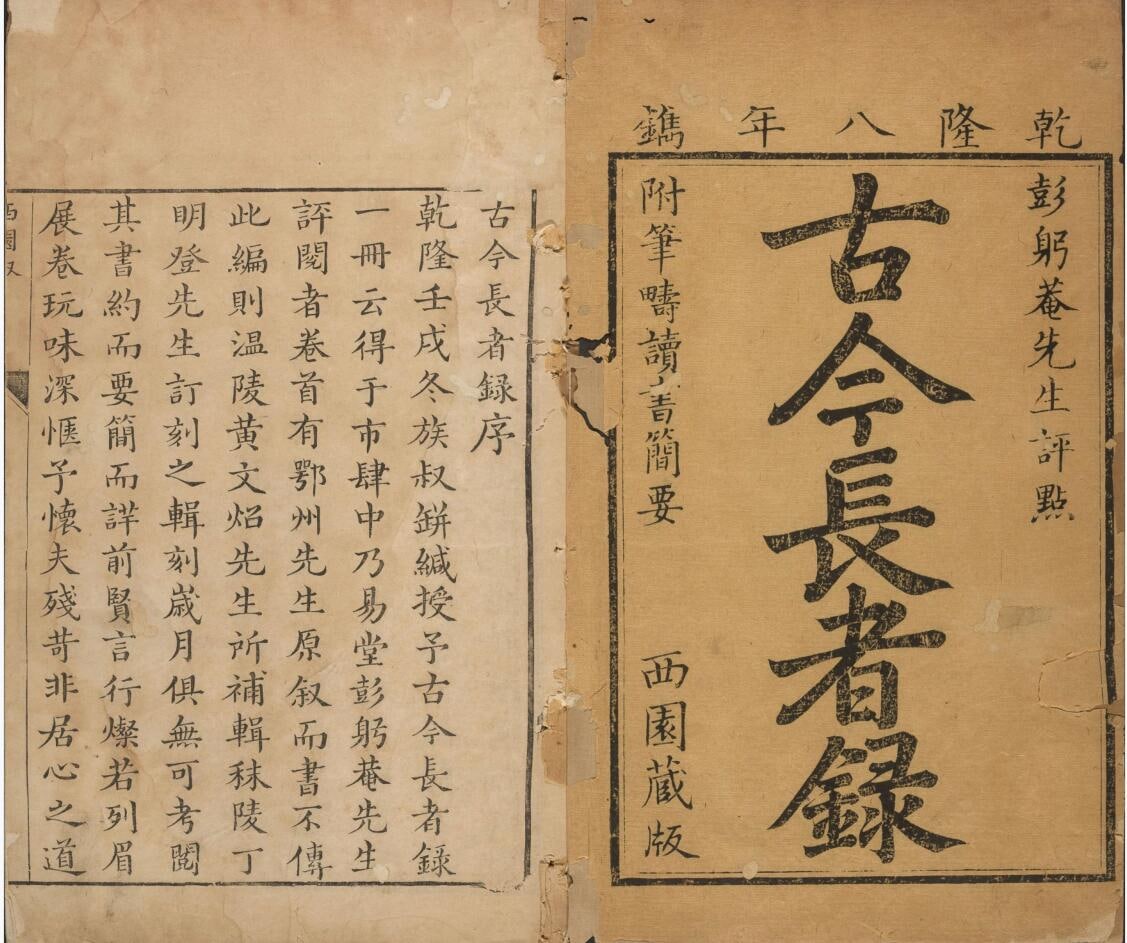 乾隆八年鐫
彭躬菴先生評點
古今長者録
附筆疇讀書簡要
西園蔵版
古今長者録序
乾隆壬戌冬族叔鉼緘授予古今長者録
一冊云得于市肆中乃易堂彭躬菴先生
評閱者卷首有鄂州先生原叙而書不傳
此編則温陵黄文炤先生所補輯秣陵丁
明登先生訂刻之輯刻歳月俱無可考閱
其書約而要簡而詳前賢言行燦若列眉
展卷玩味深愜予懷夫殘苛非居心之道
西園叙